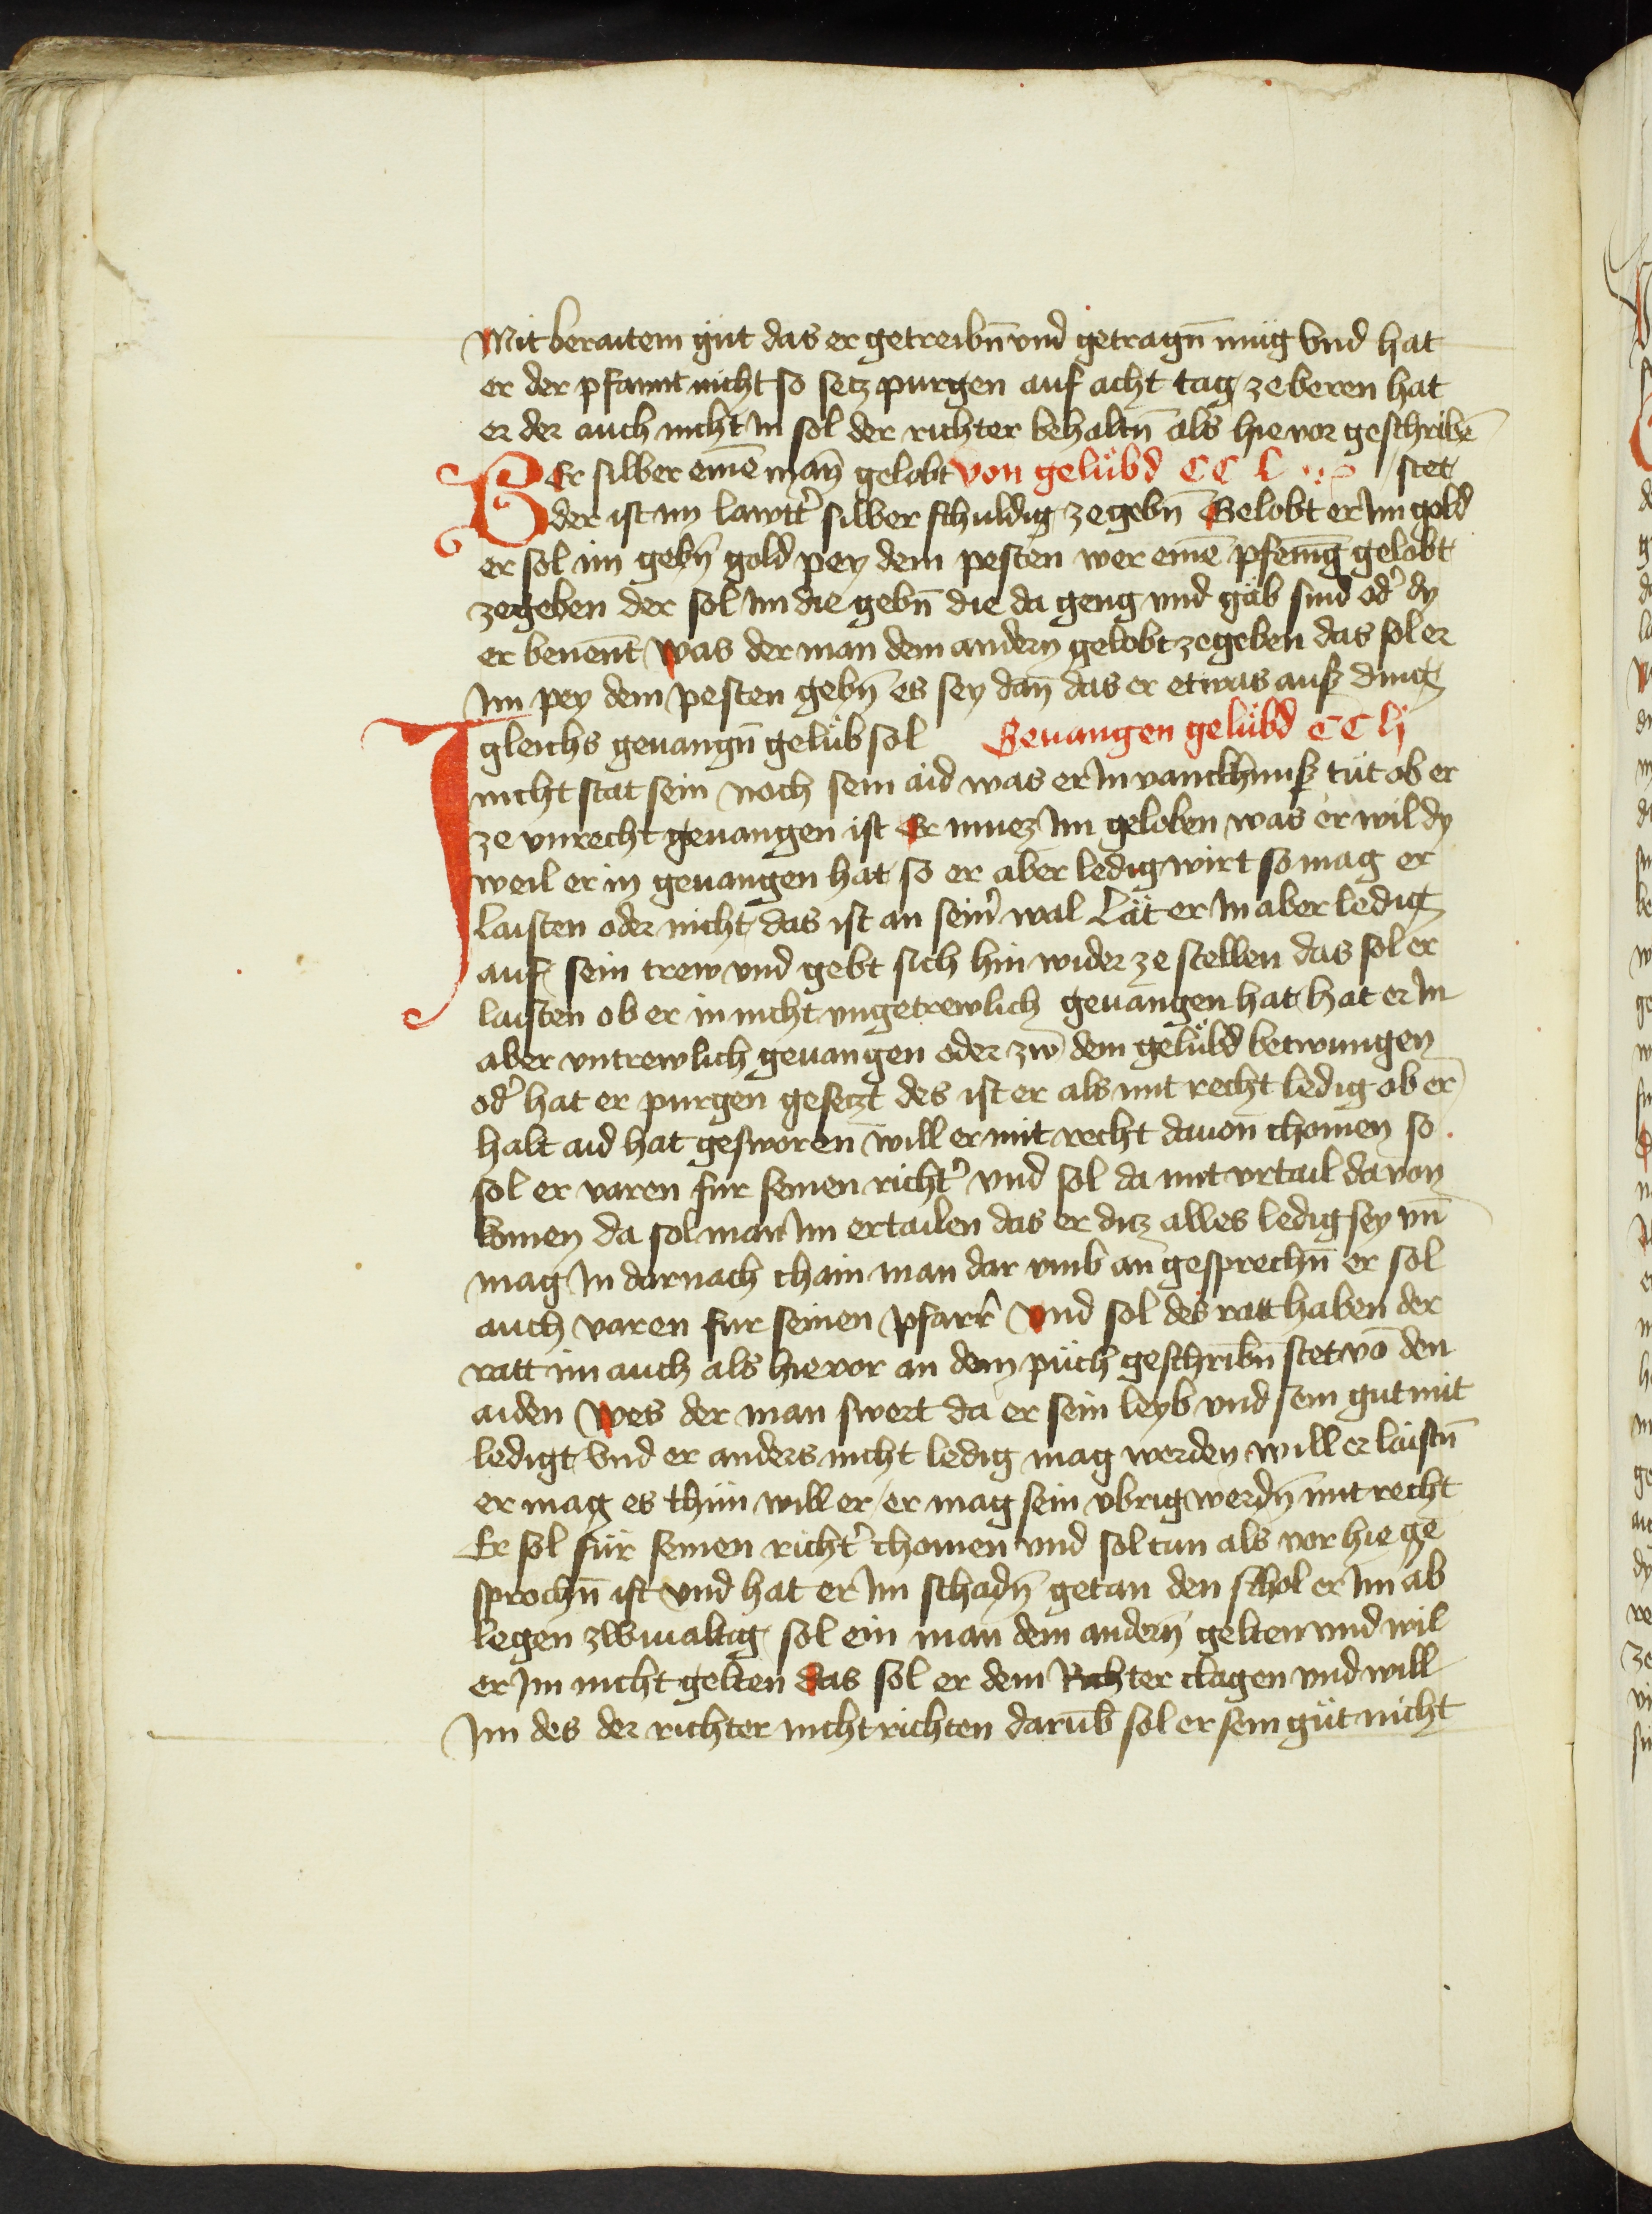 Mit beraitem gut das er getreibn̄ vnd getragn̄ mug Vnd hat
er der pfannt nicht so setz purgen auf acht tag ze beren hat
er der auch nicht In sol der richter behaltn̄ als hie vor geschribē
Er silber einē man̄ gelobt Von gelübd CC L stet
der ist im lawtt̓ silber schuldig ze gebn̄ Gelobt er Im gold
er sol im gebn̄ gold pey dem pesten wer einē pfenīg gelobt
zegeben der sol Im die gebn̄ die da geng vnd gäb sind od̓ dy
er benent̄ Was der man dem andern gelobt zegeben das sol er
Im pey dem pesten gebn̄ es sey dan̄ das er etwas auß ding
Igleichs geuangn̄ gelüb sol Geuangen gelübd CC lj
nicht stat sein noch sein aid was er In vanckhnuß tüt ob er
ze vnrecht geuangen ist Er muez Im geloben was er wil dy
weil er in geuangen hat so er aber ledig wirt so mag er
laisten oder nicht das ist an sein̓ wal Lät er In aber ledig
auf sein trew vnd gebt sich hin wider ze stellen das sol er
laisten ob er in nicht vngetrewlich geuangen hat hat er In
aber vntrewlich geuangen oder zw dem gelübd betwungen
od̓ hat er purgen gesetzt des ist er als mit recht ledig ob er
halt aid hat gesworen will er mit recht dauon chomen so
sol er varen fur seinen richt̓ vnd sol da mit vrtail dauon
komen da sol man Im ertailen das er ditz alles ledig sey vn̄
mag In darnach chain man dar vmb an gesprechn̄ er sol
auch varen fur seinen pfarr̓ Vnd sol des ratt haben der
ratt im auch als hie vor an dem püch geschribn̄ stet vō den
aiden Wes der man swert da er sein leyb vnd sein gut mit
ledigt Vnd er anders nicht ledig mag werden will er laistn̄
er mag es thün will er er mag sein vbrig werdn̄ mit recht
Er sol für seinen richt̓ chomen vnd sol tun als vor hie ge
sprochn̄ ist Vnd hat er Im schadn̄ getan den schol er Im ab
legen zwiualtig sol ein man dem andern̄ gelten vnd wil
er Im nicht gelten das sol er dem Richter clagen vnd will
Im des der richter nicht richten darūb sol er sein güt nicht